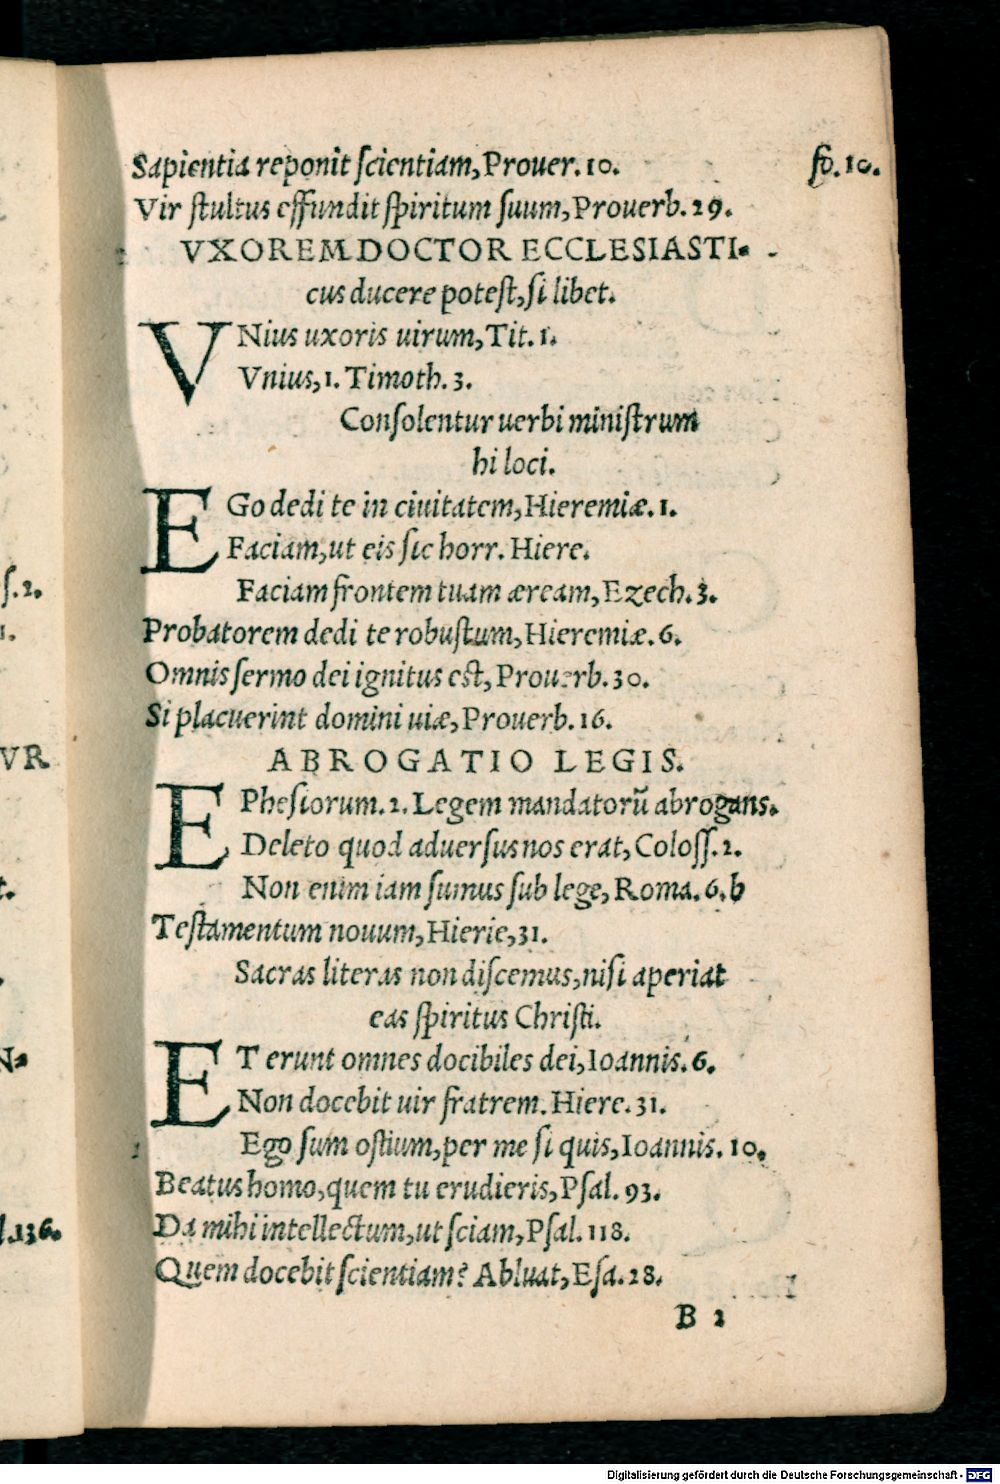 Sapientia reponit ſcientiam, Prouer. 10.
fo. 10.
Vir ſtultus effundit ſpiritum ſuum, Prouerb. 29.
VXOREM DOCTOR ECCLESIASTI-
cus ducere poteſt, ſi libet.
VNius uxoris uirum, Tit. 1.
Vnius, 1. Timoth. 3.
Conſolentur uerbi miniſtrum
hi loci.
EGo dedi te in ciuitatem, Hieremiæ. 1.
Faciam, ut eis ſic horr. Hiere.
Faciam frontem tuam æream, Ezech. 3.
Probatorem dedi te robuſtum, Hieremiæ. 6.
Omnis ſermo dei ignitus eſt, Prouerb. 30.
Si placuerint domini uiæ, Prouerb. 16.
ABROGATIO LEGIS.
EPheſiorum. 2. Legem mandatorū abrogans.
Deleto quod aduerſus nos erat, Coloſſ. 2.
Non enim iam ſumus ſub lege, Roma. 6. b
Teſtamentum nouum, Hierie, 31.
Sacras literas non diſcemus, niſi aperiat
eas ſpiritus Chriſti.
ET erunt omnes docibiles dei, Ioannis. 6.
Non docebit uir fratrem. Hiere. 31.
Ego ſum oſtium, per me ſi quis, Ioannis. 10.
Beatus homo, quem tu erudieris, Pſal. 93.
Da mihi intellectum, ut ſciam, Pſal. 118.
Quem docebit ſcientiam? Abluat, Eſa. 28.
B 2
ſ. 2.
1.
VR
t.
N-
l. 136.
Digitalisierung gefördert durch die Deutsche Forschungsgemeinschaft - DFG